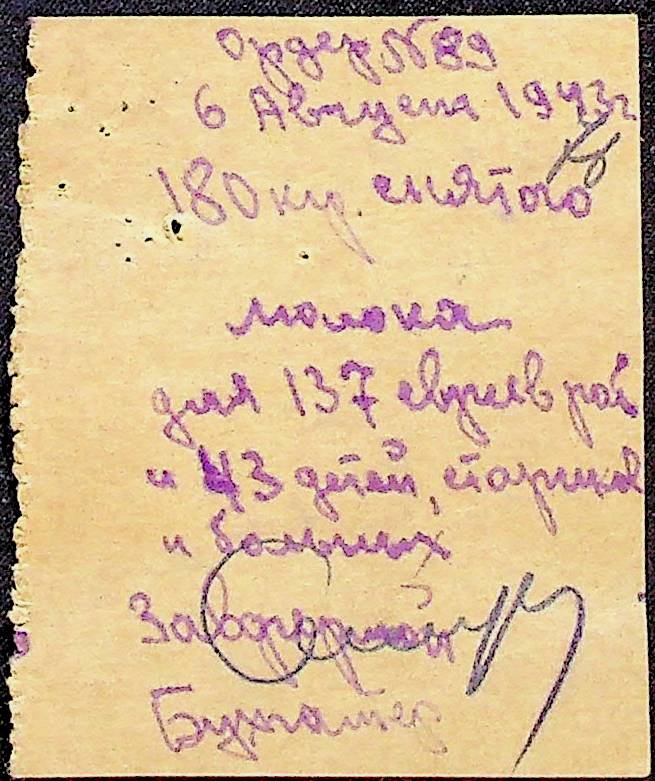 Ордер N 89
6 Августа 1943 г
180 кгр. снятого
молока
для 137 евреев раб
и 43 детей, стариков
и больных
Бухгалтер